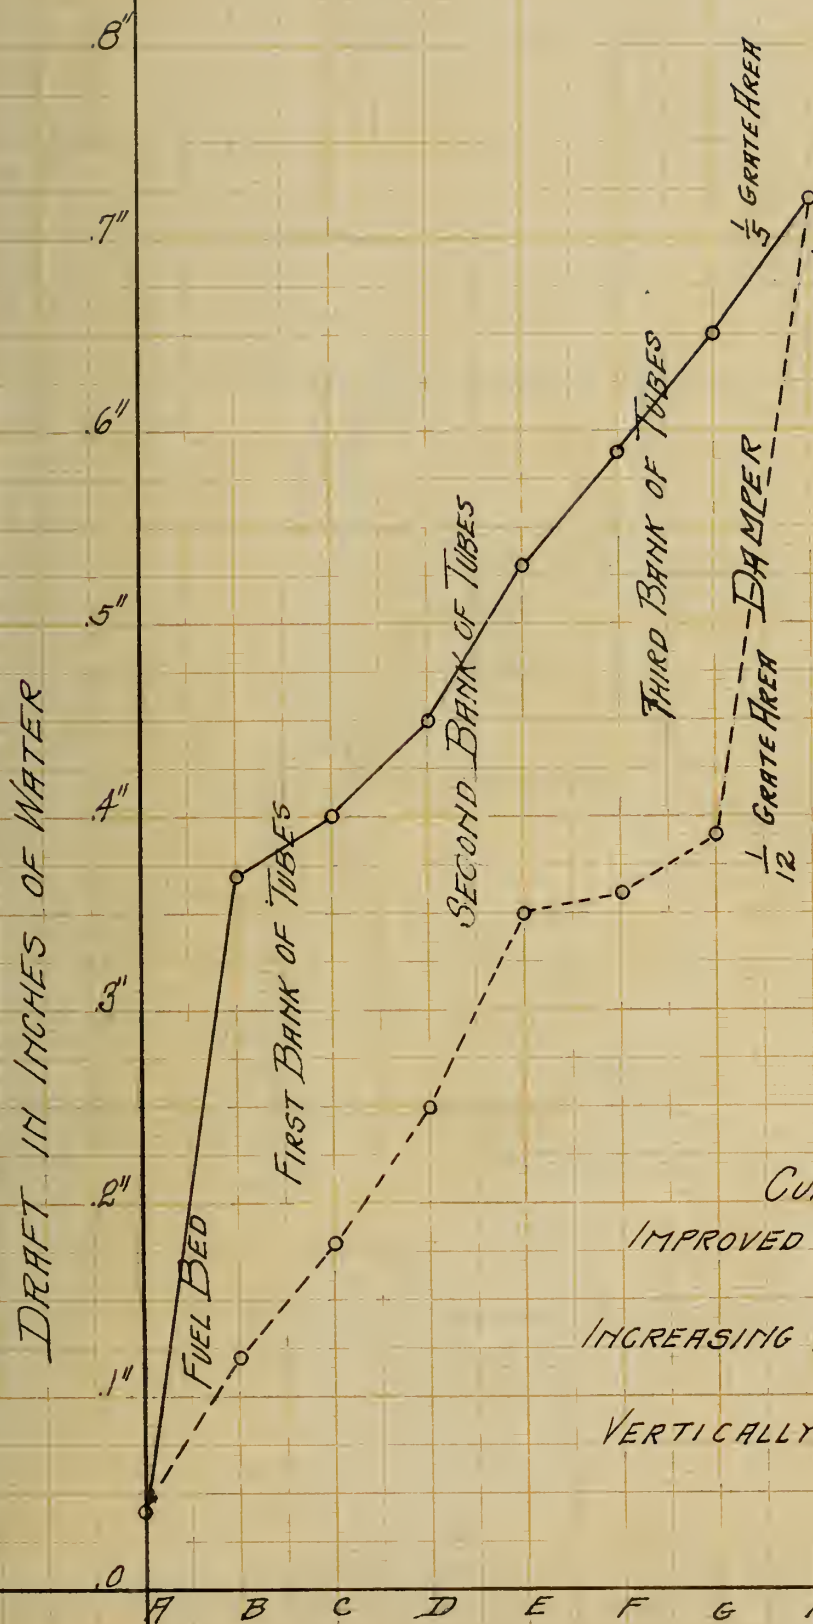 .8"
.7"
.6"
.5"
.4"
.3"
.2"
.1"
.0
DRAFT IN INCHES OF WATER
FUEL BED
FIRST BANK OF TUBES
SECOND BANK OF TUBES
THIRD BANK OF TUBES
DAMPER
1/5 GRATE AREA
1/12 GRATE AREA
IMPROVED
INCREASING
VERTICALLY
A B C D E F G